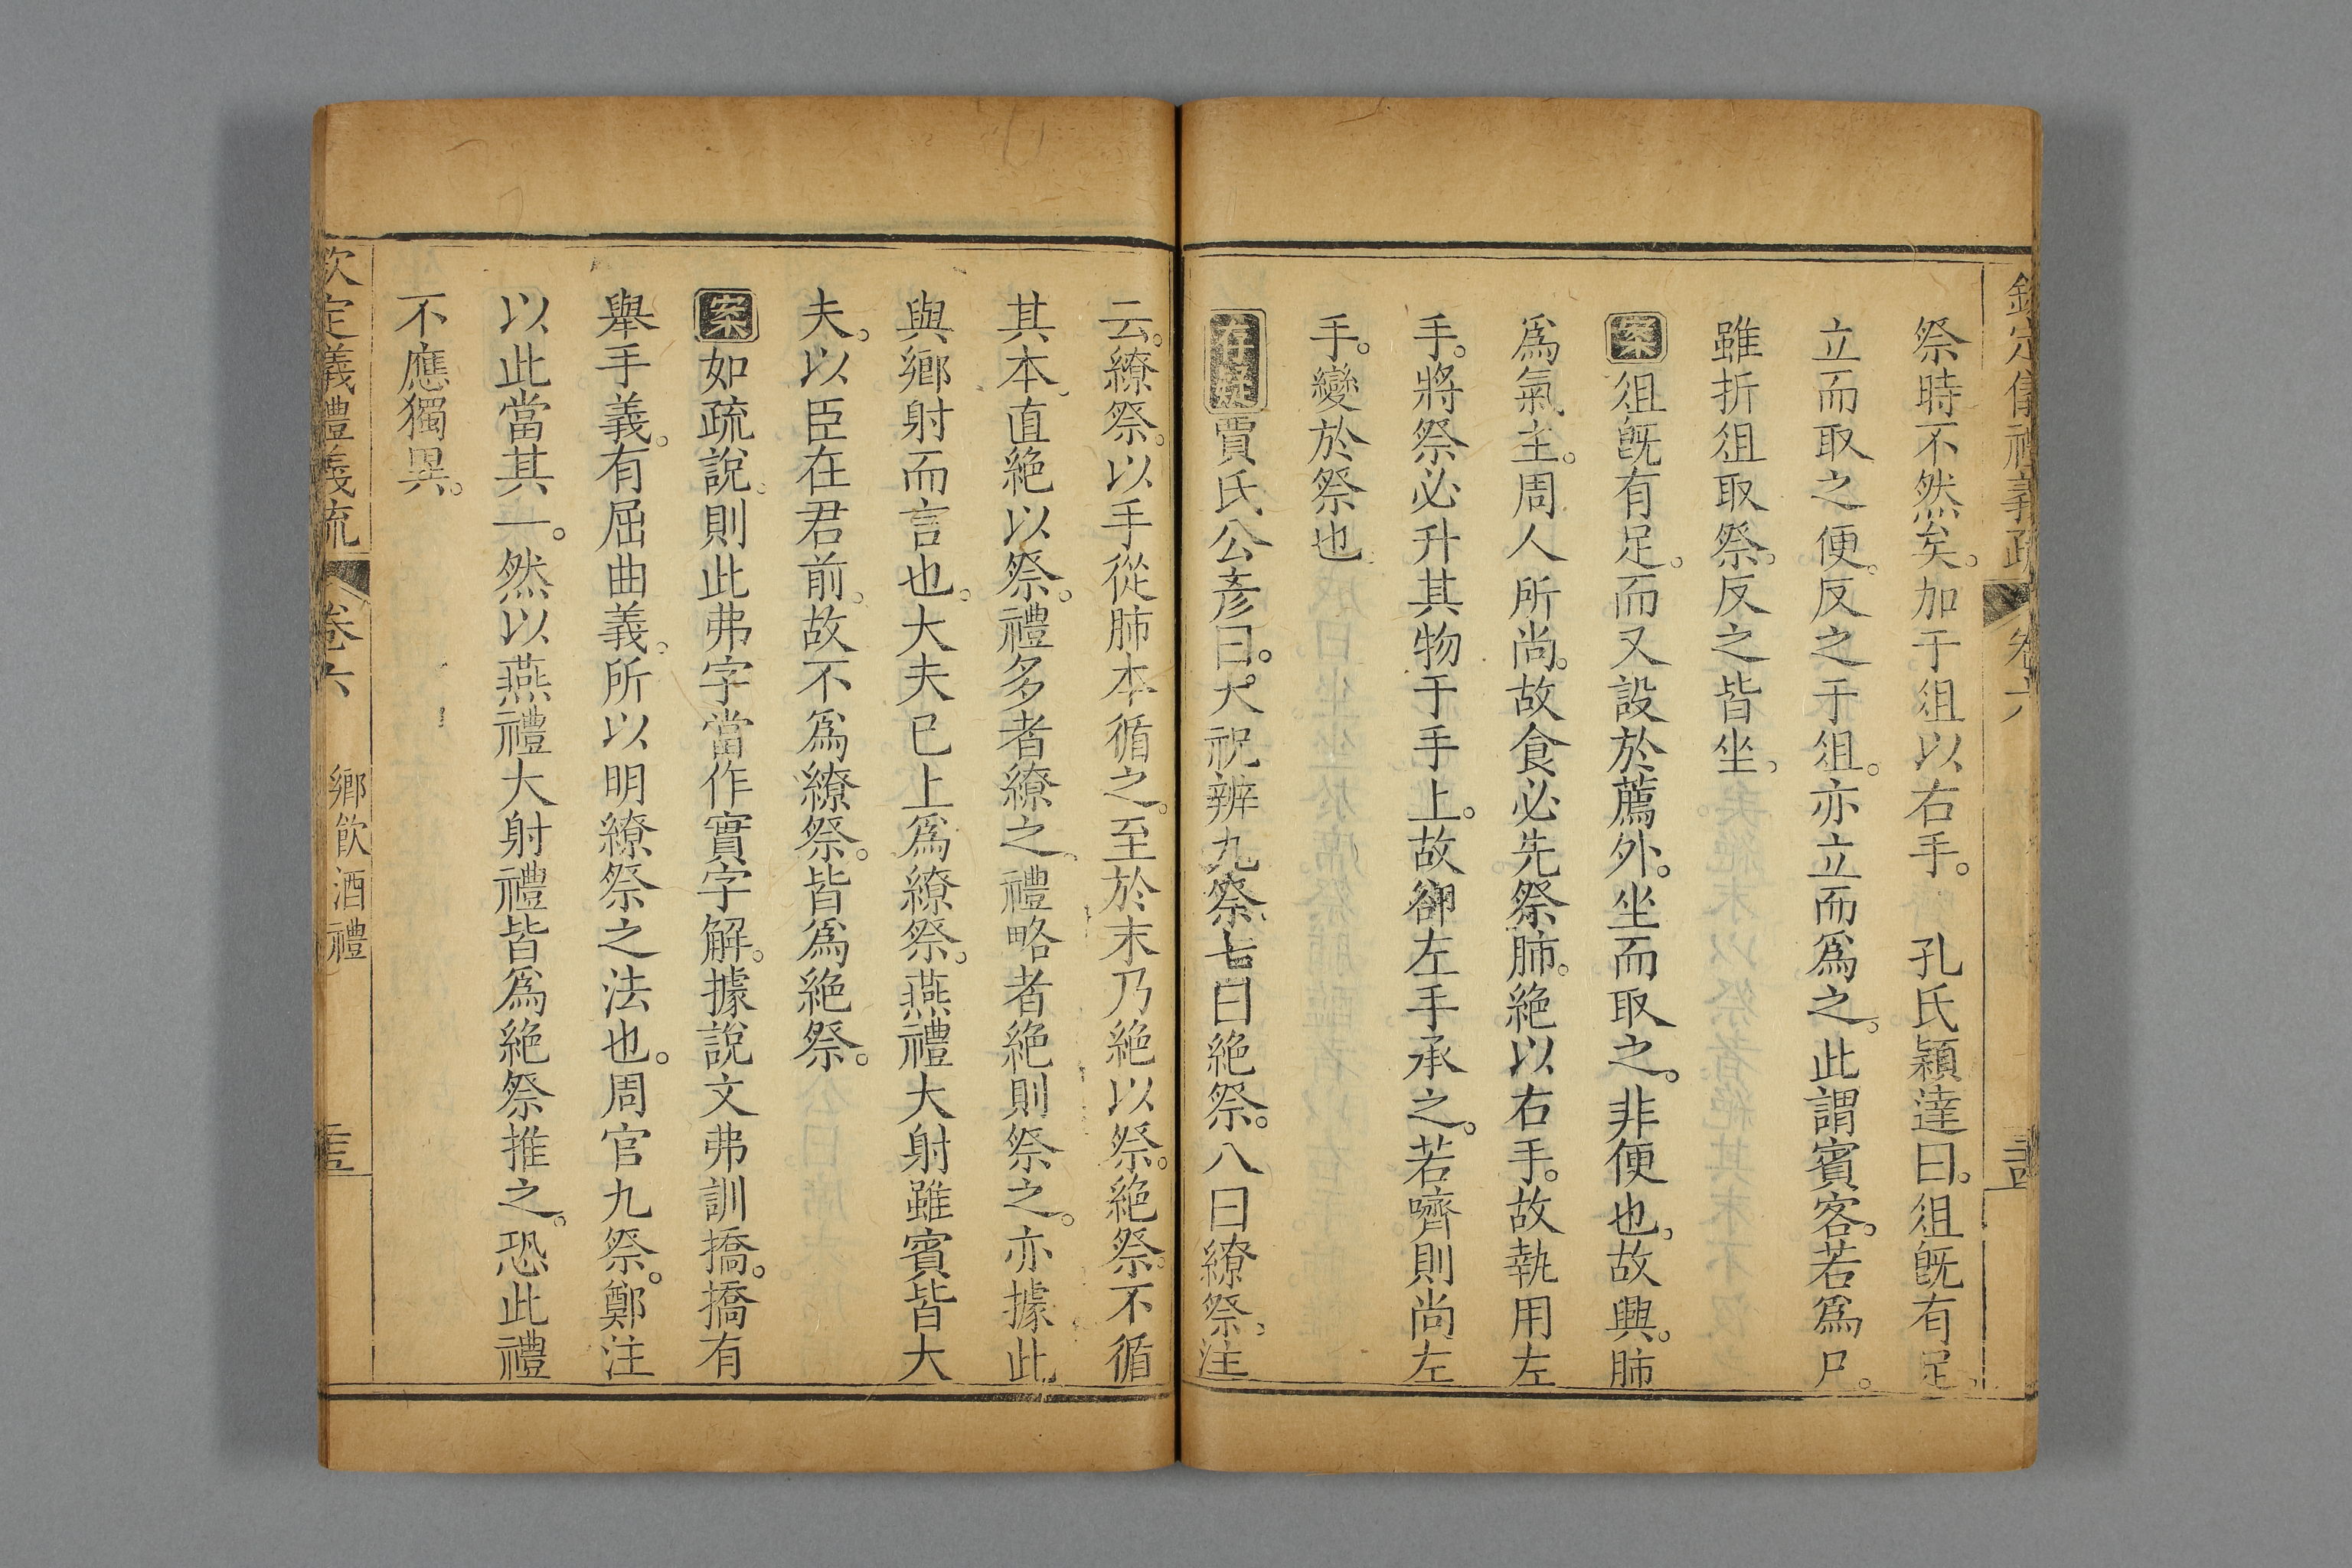 欽定儀禮義疏 卷六
祭時不然矣。加于俎以右手。 孔氏穎達曰。俎旣有足、
立而取之便。反之于俎。亦立而爲之。此謂賓客。若爲尸。
雖折俎取祭。反之皆坐、
案俎旣有足。而又設於薦外。坐而取之。非便也、故興。肺
爲氣主。周人所尚。故食必先祭肺。絶以右手。故執用左
手。將祭必升其物于手上。故卻左手承之。若嚌則尚左
手。變於祭也
存疑賈氏公彥曰。大祝辨九祭、七曰絶祭。八曰繚祭、注
云。繚祭。以手從肺本循之。至於末乃絶以祭。絶祭。不循
其本、直絶以祭。禮多者繚之、禮略者絶則祭之。亦據此
與鄉射而言也。大夫已上爲繚祭。燕禮大射雖賓皆大
夫。以臣在君前。故不爲繚祭。皆爲絶祭。
案如疏說。則此弗字當作實字解。據說文弗訓撟。撟有
舉手義。有屈曲義。所以明繚祭之法也。周官九祭。鄭注
以此當其一。然以燕禮大射禮皆爲絶祭推之。恐此禮
不應獨異。
欽定義禮義疏 卷六 鄉飲酒禮